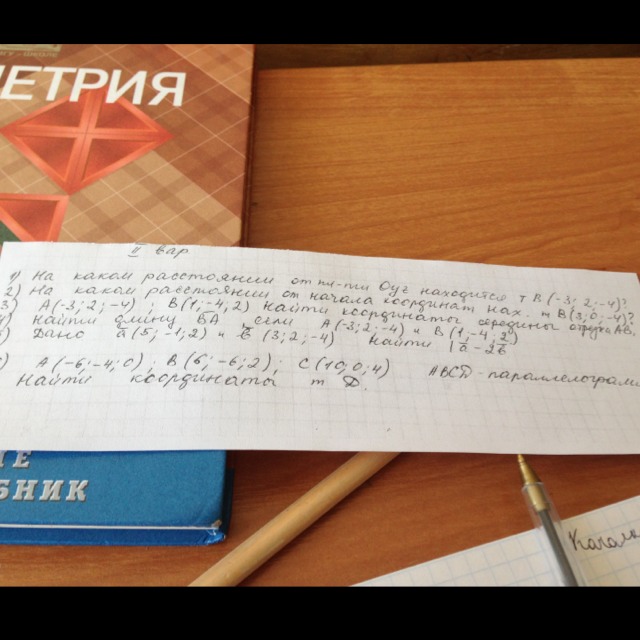 ЕТРИЯ
II вар
1) На каком расстоянии от пл-ти Oyz находится т B(-3; 2; -4)?
2) На каком расстоянии от начала координат нах. т B(3; 0; -4)?
3) A(-3; 2; -4) и B(1; -4; 2) Найти координаты середины отрезка AB.
4) Найти длину BA если A(-3; 2; -4) и B(1; -4; 2)
5) Дано a(5; -1; 2) и b(3; 2; -4) Найти |a - 2b|
) A(-6; -4; 0), B(6; -6; 2), C(10; 0; 4) ABCD - параллелограмм
Найти координаты т D.
ТЕ
БНИК